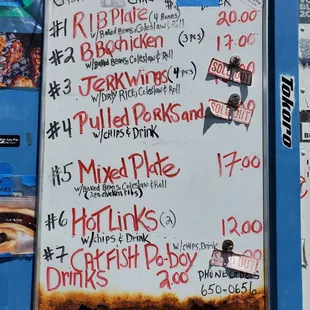 #1 RIB Plate (4 Bones) 20.00
w/Baked Beans, Coleslaw & Roll
#2 BBQ chicken (3pcs) 17.00
w/Baked Beans, Coleslaw & Roll
#3 JERK Wings (4 pcs)
w/Dirty Rice, Coleslaw & Roll
SOLD OUT
#4 Pulled PORK Sand
w/chips & Drink
SOLD OUT
#5 Mixed Plate 17.00
w/Baked Beans, Coleslaw & Roll
#6 HOT Links (2) 12.00
w/chips & Drink
#7 CATFISH Po-boy
w/chips, Drink
Drinks 2.00
650-0656
Tokoro